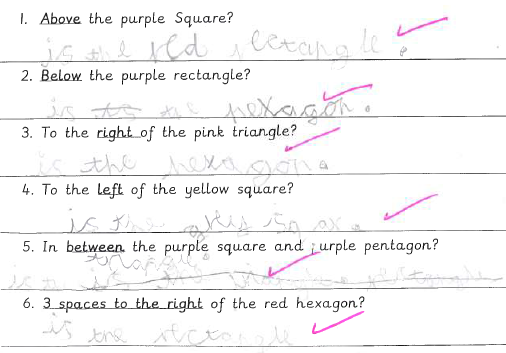 1. Above the purple Square?
is the red rectangle.
2. Below the purple rectangle?
is the hexagon.
3. To the right of the pink triangle?
is the hexagon.
4. To the left of the yellow square?
is the
5. In between the purple square and purple pentagon?
triangle.
is
6. 3 spaces to the right of the red hexagon?
is the rectangle